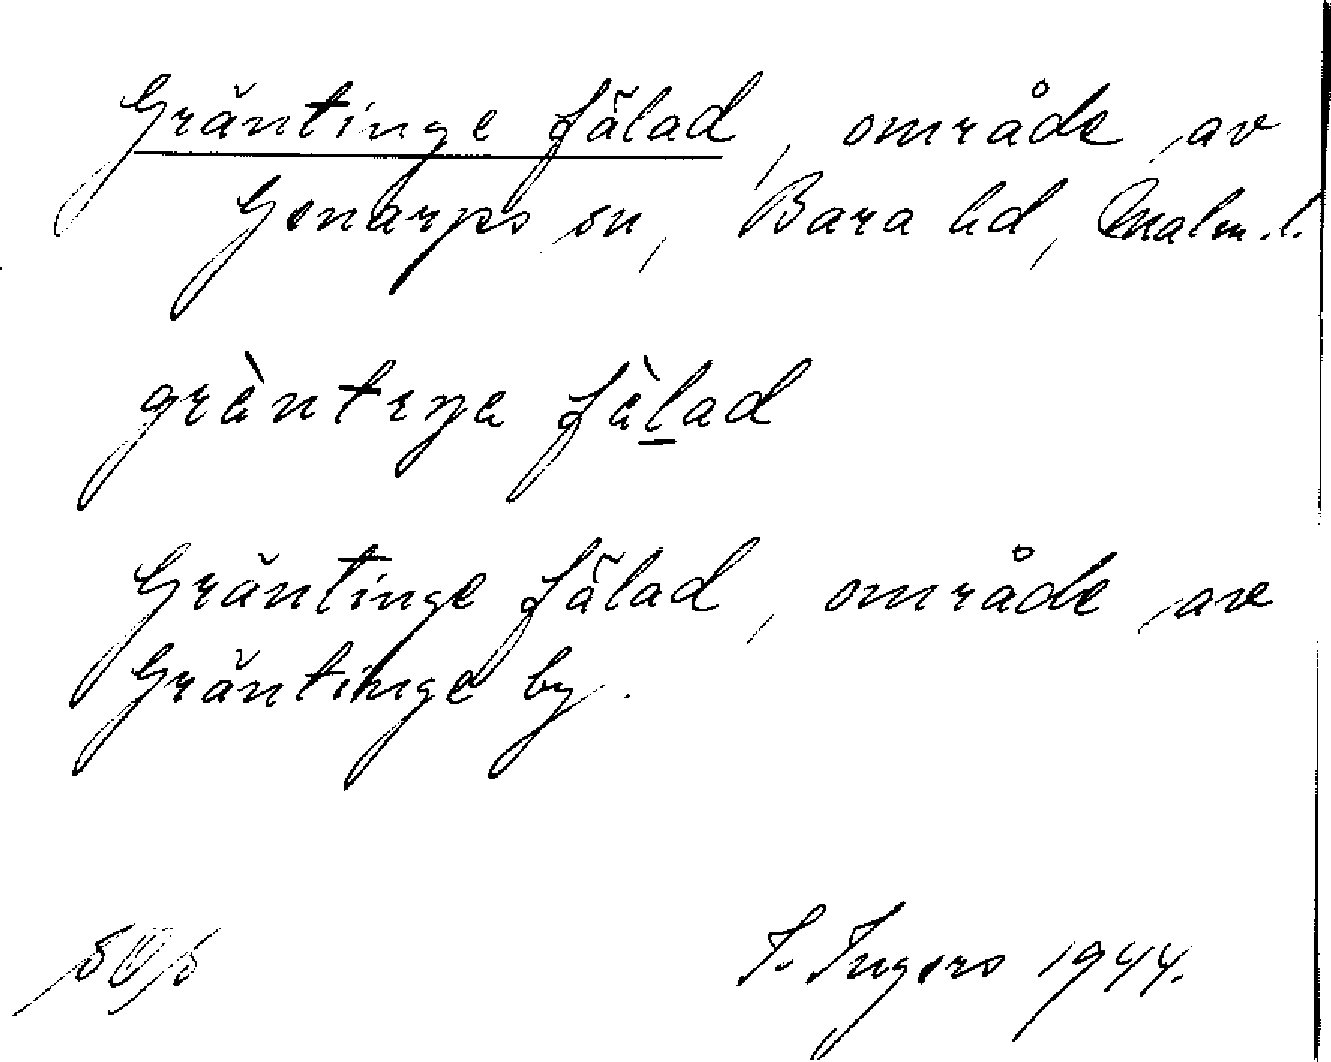 Gräntinge fälad, område av
Genarps sn, Bara hd, Malm.l.
gràntıŋa fàlad
Gräntinge fälad, område av
Gräntinge by.
I. Ingers 1944.